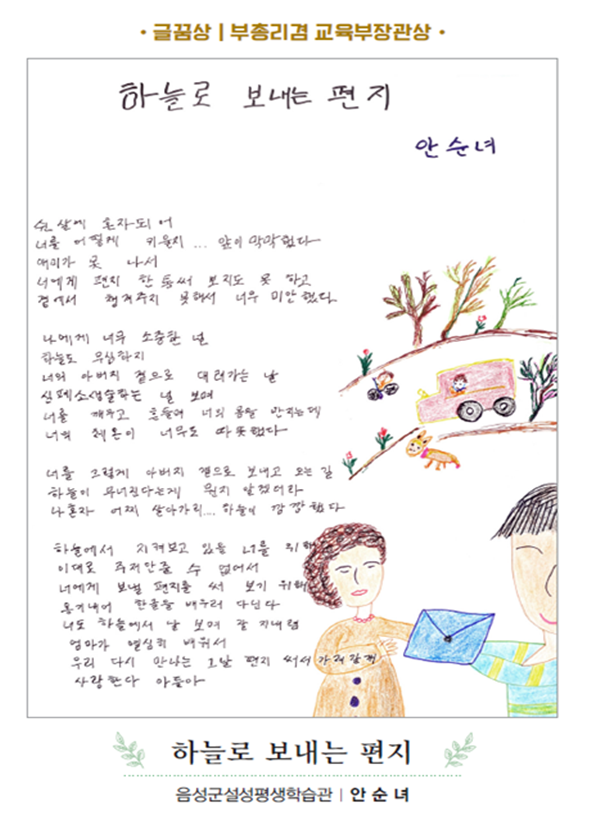 • 글꿈상 | 부총리겸 교육부장관상 •
하늘로 보내는 편지
안순녀
살에 혼자되어
너를 어떻게 키울지 ... 앞이 막막했다
애미가 못 나서
너에게 편지 한 통 써 보지도 못 하고
곁에서 챙겨주지 못해서 너무 미안했다
나에게 너무 소중한 널
하늘도 무심하지
너의 아버지 곁으로 데려가는 날
심폐소생술하는 널 보며
너를 깨우고 흔들며 너의 몸을 만지는데
너의 체온이 너무도 따뜻했다
너를 그렇게 아버지 곁으로 보내고 오는 길
하늘이 무너진다는게 뭔지 알겠더라
나혼자 어찌 살아가리.... 하늘이 깜깜했다
하늘에서 지켜보고 있을 너를 위해
이대로 주저안즐 수 없어서
너에게 보낼 편지를 써 보기 위해
용기내어 한글을 배우러 다닌다
너도 하늘에서 날 보며 잘 지내렴
엄마가 열심히 배워서
우리 다시 만나는 그날 편지 써서 가져갈게
사랑한다 아들아
하늘로 보내는 편지
음성군설성평생학습관 | 안순녀